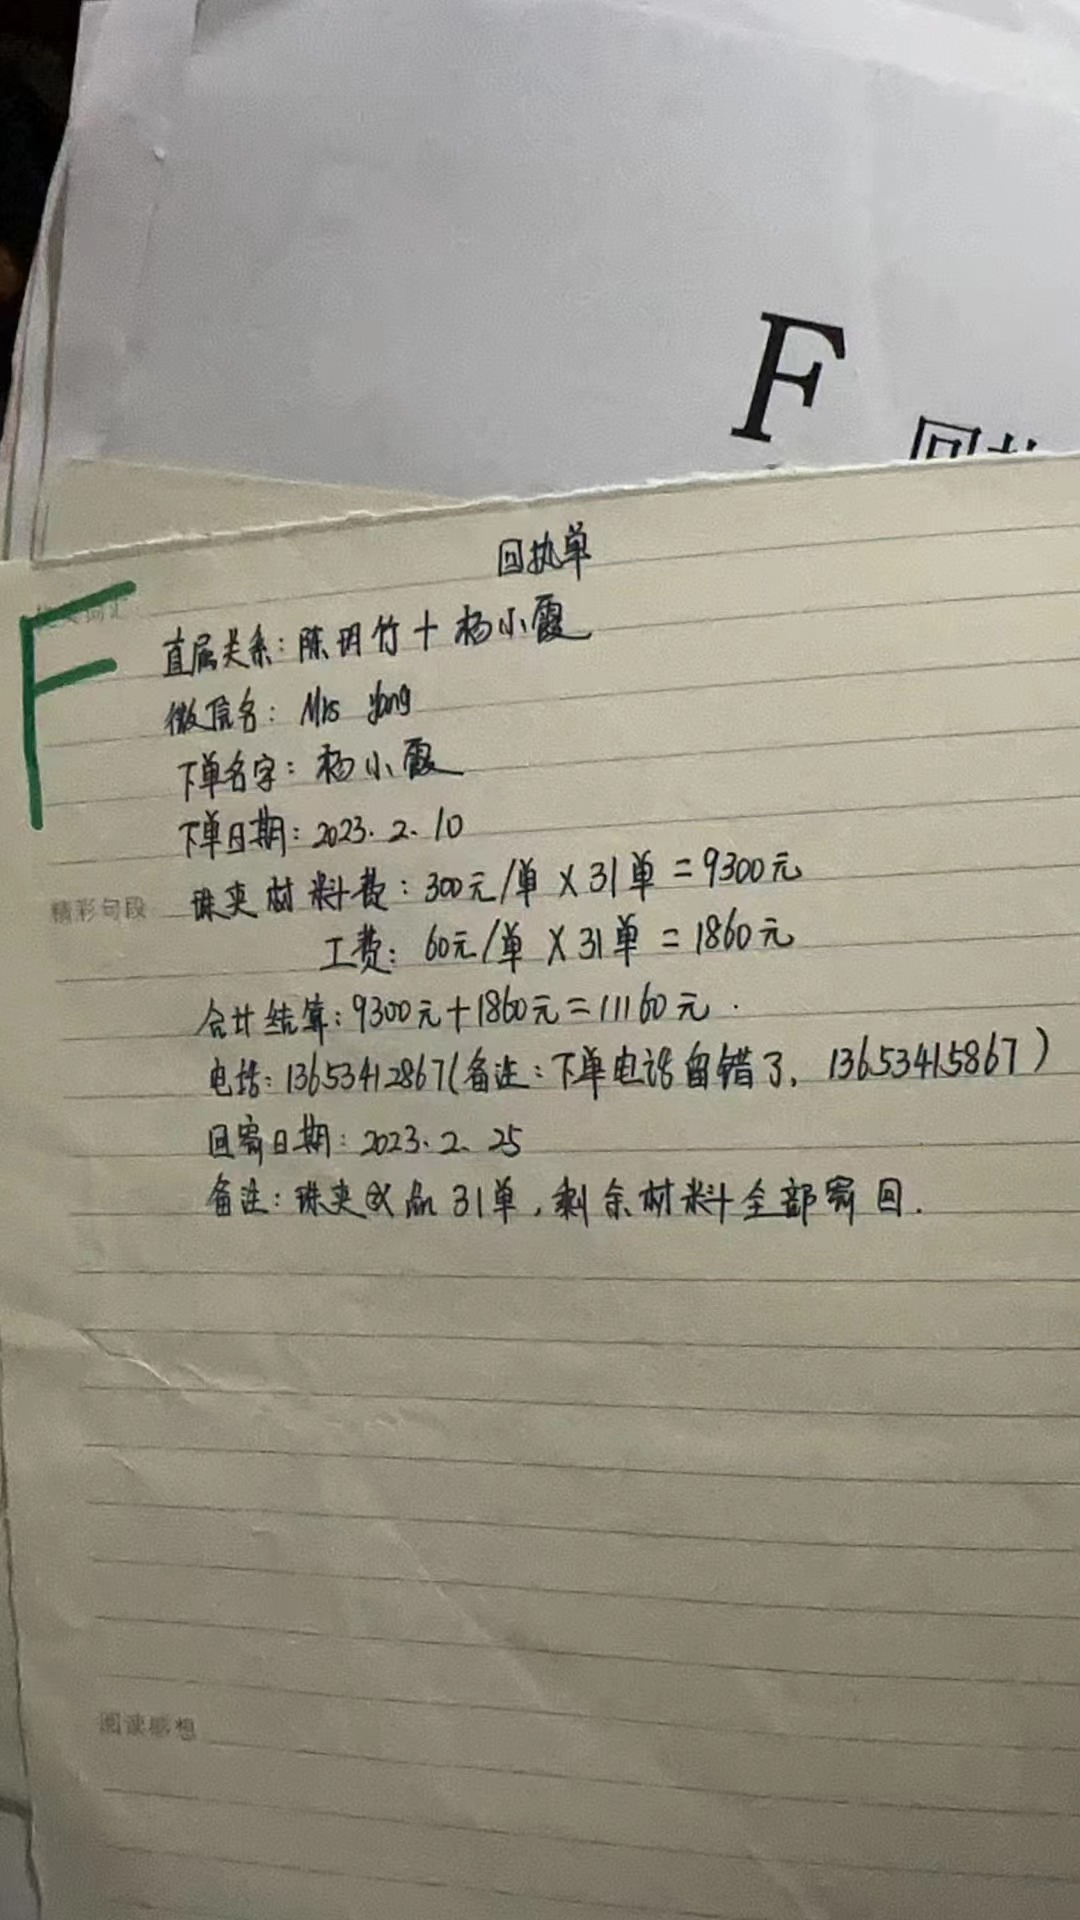 F
回执单
F
直属关系：陈玥竹＋杨小霞
微信名：Mrs yang
下单名字：杨小霞
下单日期：2023.2.10
珠夹材料费：300元/单×31单＝9300元
精彩句段
工费：60元/单×31单＝1860元
合计结算：9300元＋1860元＝11160元.
电话：13653412867(备注：下单电话留错了，13653415867)
回寄日期：2023.2.25
备注：珠夹成品31单，剩余材料全部寄回.
阅读感想